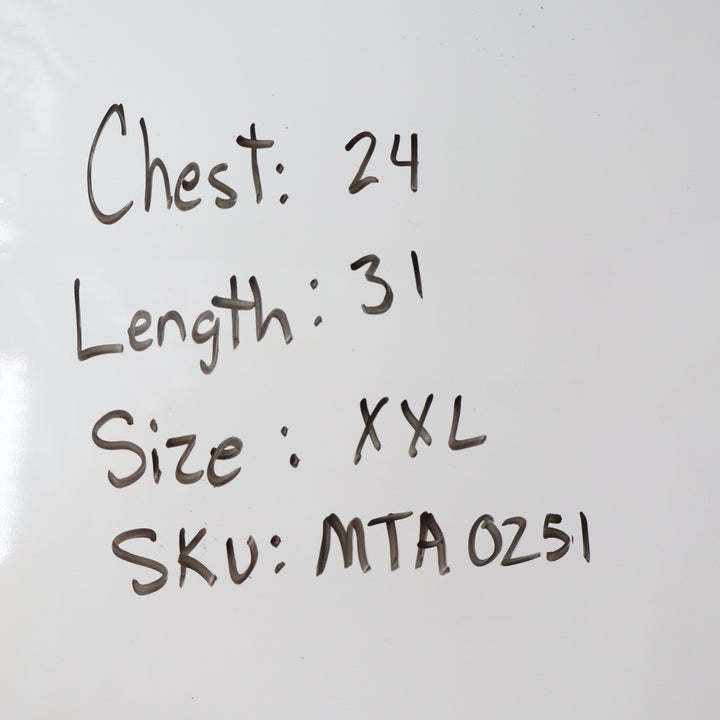 Chest: 24
Length: 31
Size: XXL
SKU: MTA0251